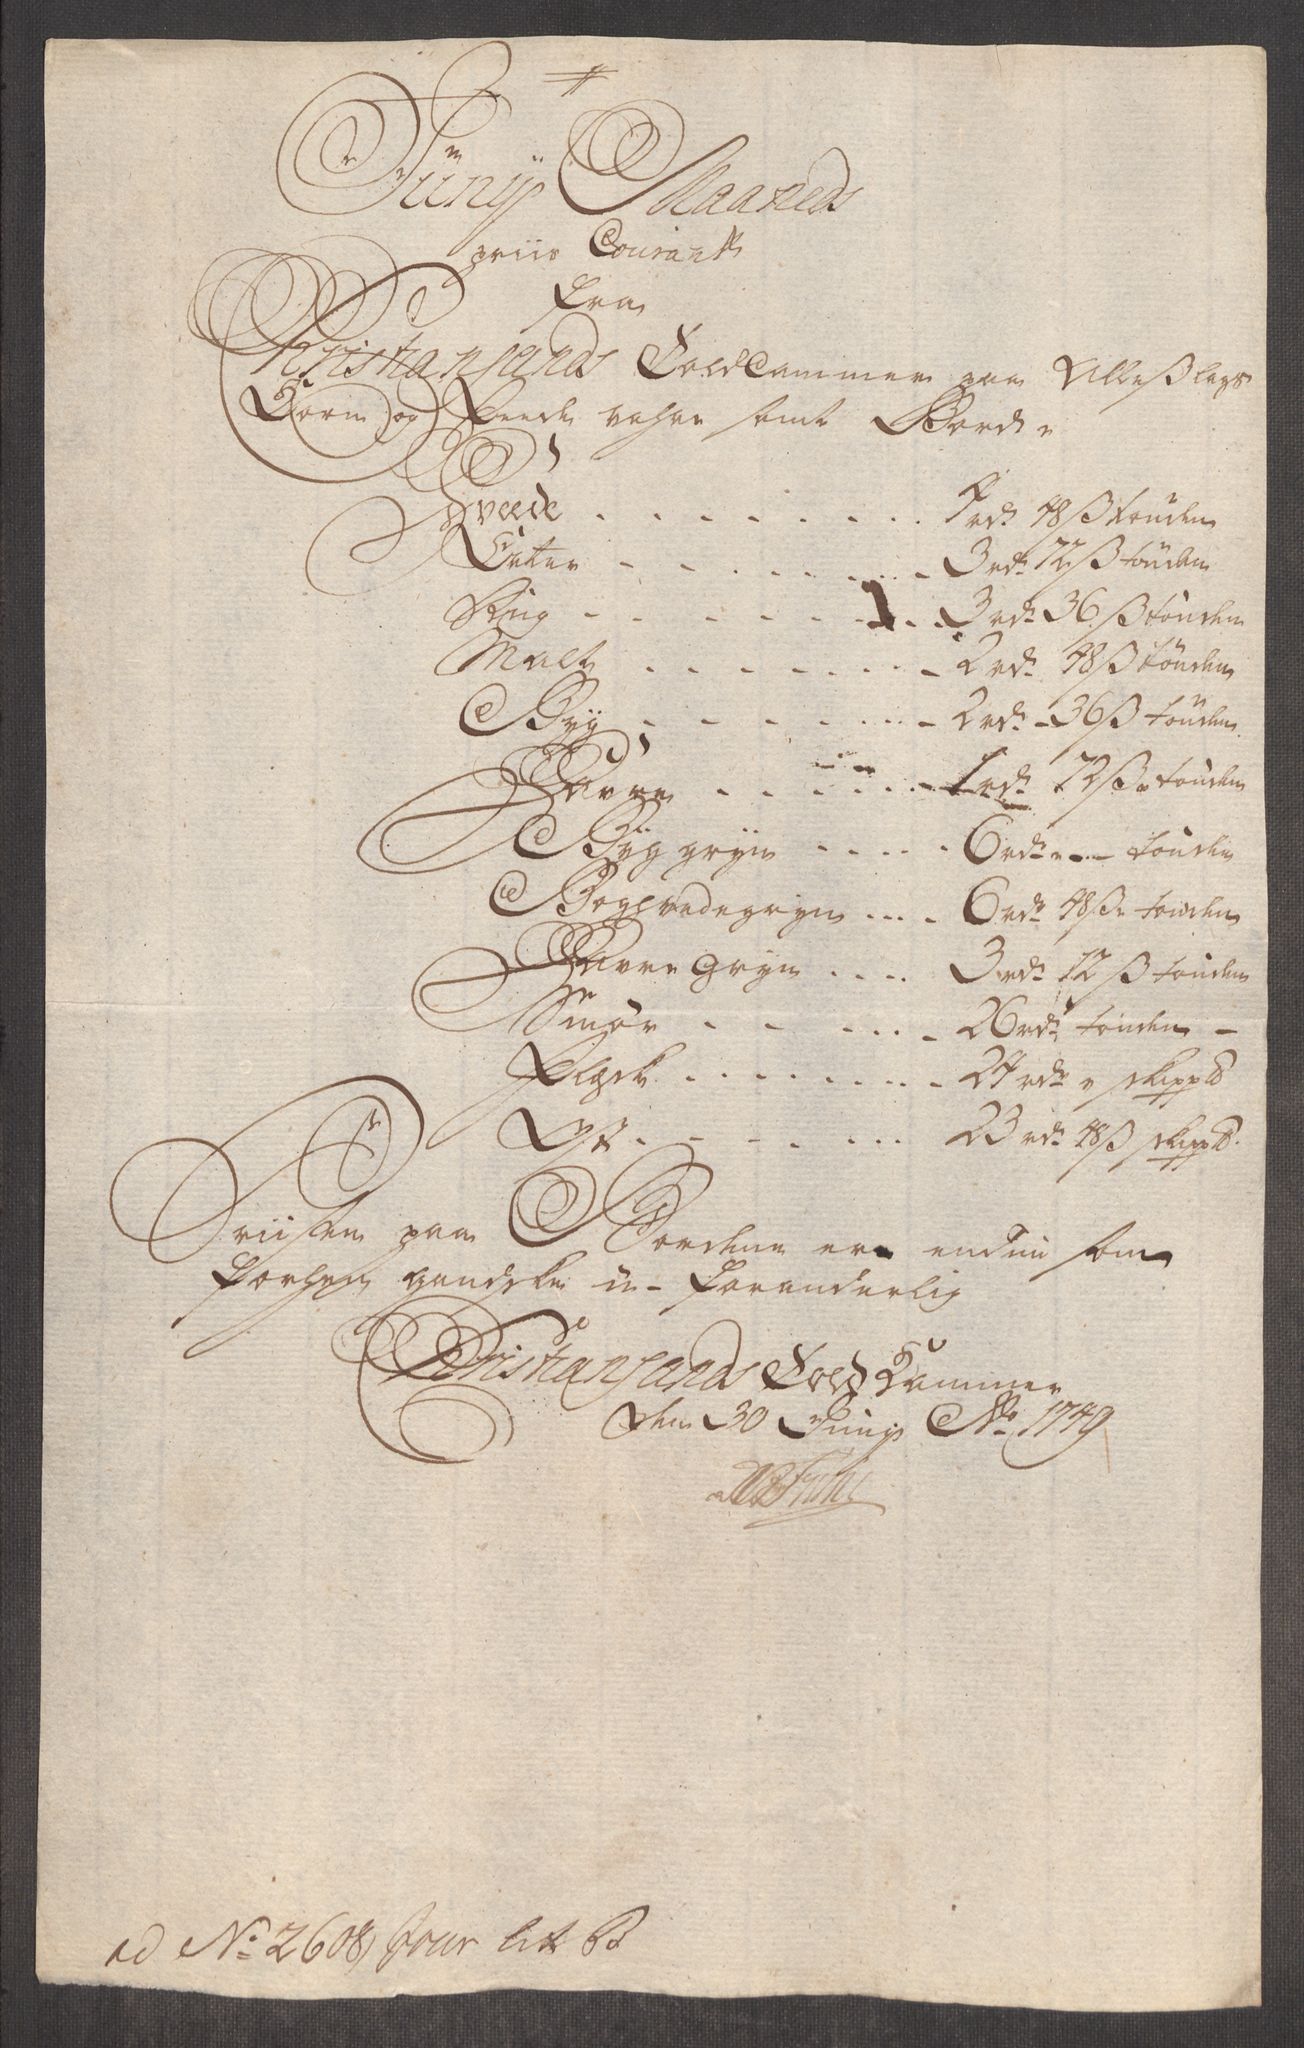 Junij Maaneds
priis Courant
fra
Christiansands Toldcammer paa Alleslags
Korn og Feede vahre samt Bord
Hveede . . . . . . . . 4 rdr 48 ß tønden
Erter . . . . . . . . 3 rdr 72 ß tønden
Rug . . . . . . . . 3 rdr 36 ß tønden
Malt . . . . . . . . 2 rdr 48 ß tønden
Byg . . . . . . . . 2 rdr 36 ß tønden
Havre . . . . . . . 1 rdr 72 ß tønden
Byg gryn . . . . . 6 rdr - tønden
Boghvedegryn . . . . 6 rdr 48 ß tønden
Havre Gryn . . . . 3 rdr 72 ß tønden
Smør . . . . . . 26 rdr tønden
Flesk . . . . . . . . 24 rdr skippd
Ost . . . . . . . . 23 rdr 48 ß skippd
Priisen paa Bordene er endnu som
forhen gandske u-foranderlig
Christiansands Told Kammer
den 30 Junij Ao 1749
ad No 2608 Jour lit B